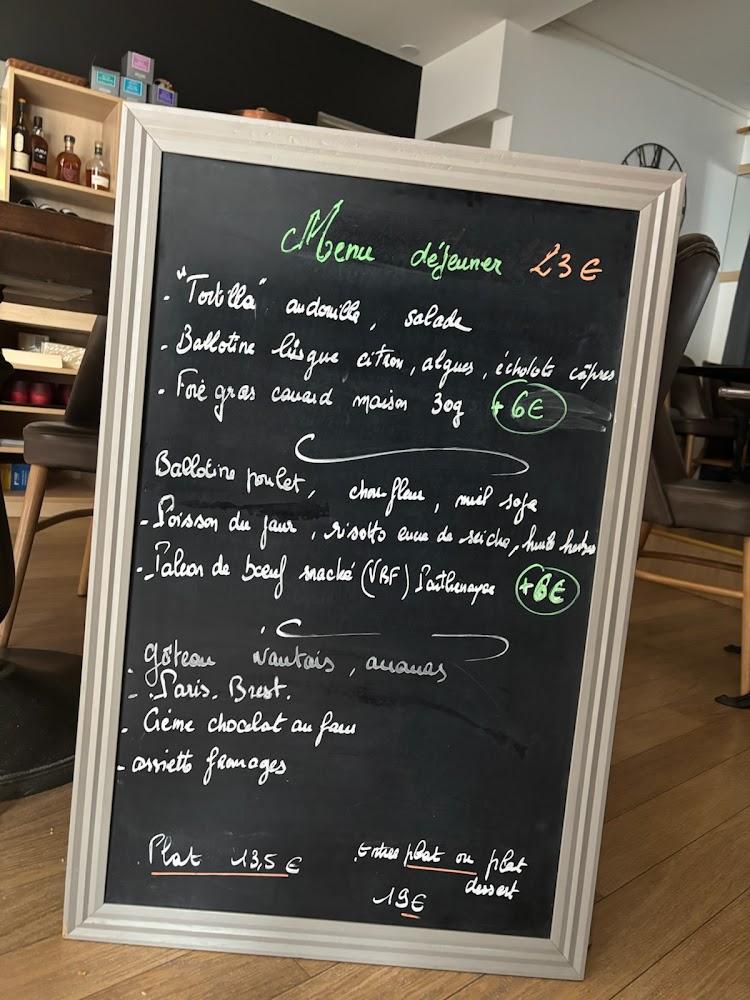 Menu déjeuner 23€
. "Tortilla" andouille, salade
. Ballotine lingue citron, algues, échalote câpres
. Foie gras canard maison 30g +6€
Ballotine poulet, chou-fleur, miel soja
- Poisson du jour, risotto encre de seiche, huile herbes
- Paleron de bœuf snacké (VBF) Parthenayse +6€
. gâteau Nantais, ananas
- Paris. Brest.
. Crème chocolat au four
- assiette fromages
. Plat 13,5 €
Entrée plat ou plat
dessert
19€